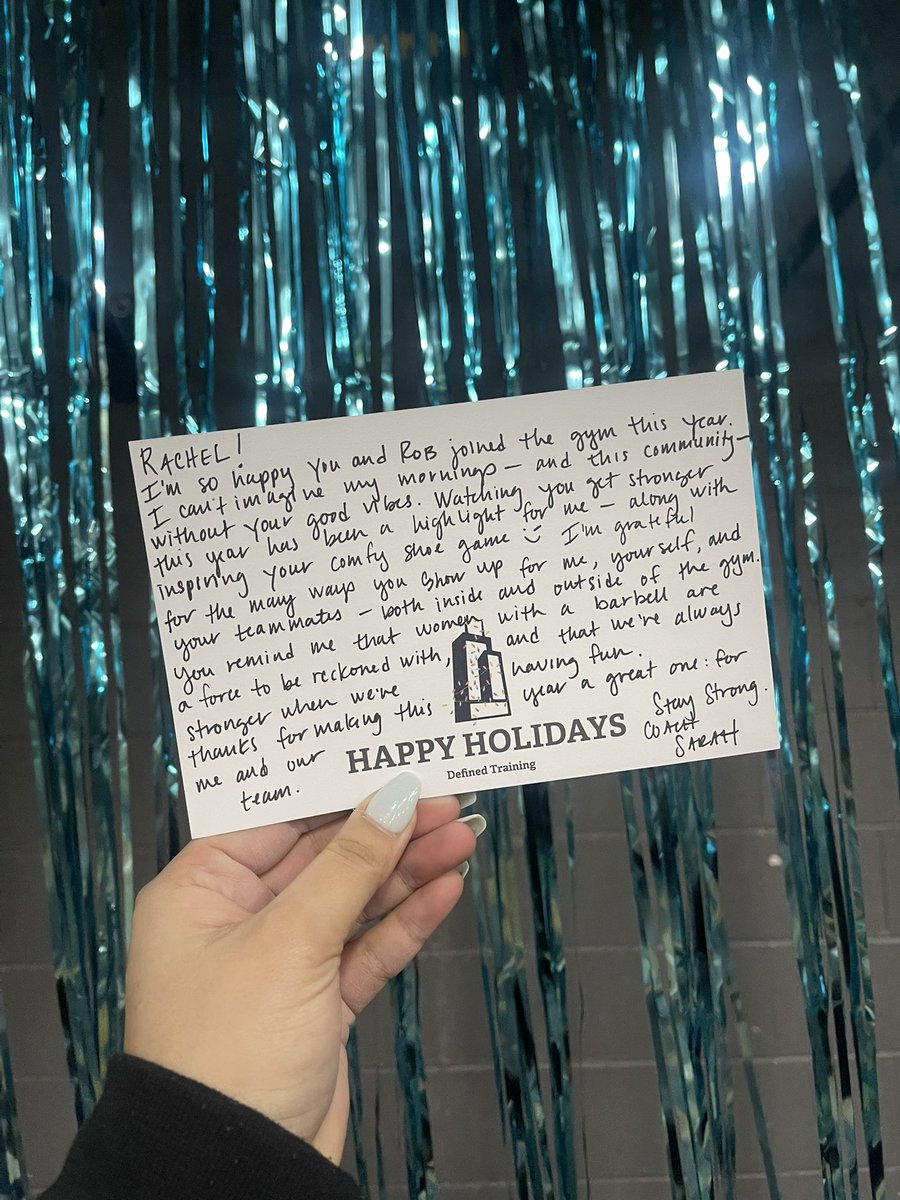 RACHEL!
I'm so happy you and ROB joined the gym this year.
I can't imagine my mornings — and this community —
without your good vibes. Watching you get stronger
this year has been a highlight for me — along with
inspiring your comfy shoe game :) I'm grateful
for the many ways you show up for me, yourself, and
your teammates — both inside and outside of the gym.
you remind me that women with a barbell are
a force to be reckoned with, and that we're always
stronger when we're having fun.
thanks for making this year a great one: for
me and our
team.
Stay Strong.
COACH
SARAH
HAPPY HOLIDAYS
Defined Training